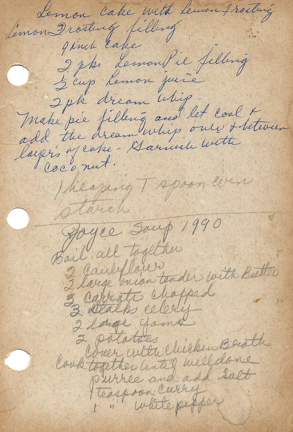 Lemon cake with lemon Frosting
Lemon Frosting filling
9 inch cake
2 pks Lemon Pie filling
½ cup lemon juice
2 pk dream whip
Make pie filling and let cool +
add the dream whip over + between
layers of cake - Garnish with
coconut.
1 heaping T spoon corn
starch
Joyce Soup 1990
Boil all together
2 cauliflour
2 large onion tender with Butter
3 carrots chopped
3 stalks celery
2 large yams
2 potatoes
Cover with Chicken Broath
Cook together until well done
purree and add salt
1 teaspoon curry
1 " white pepper